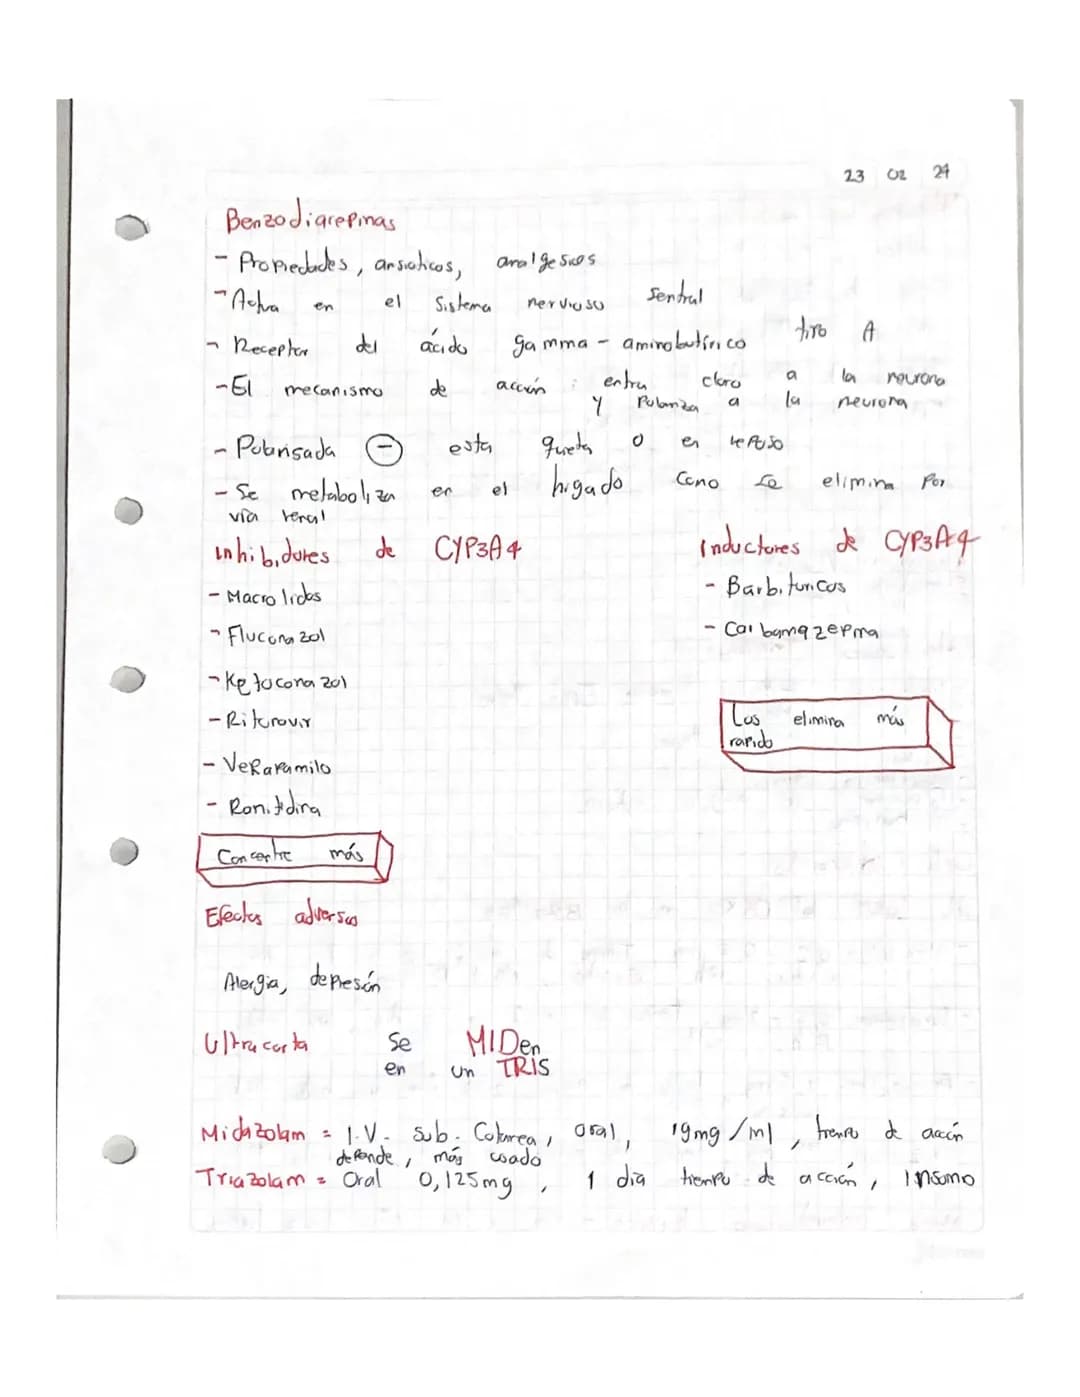 23 02 24
Benzodiacepinas
- Propiedades, ansioticos, analgesicos
- Activa en el Sistema nervioso Sentral
- Receptor del ácido gamma - aminobutirico tipo A
- El mecanismo de acción : entra cloro a la neurona
y Polariza a la neurona
- Polarisada (-) esta quieta o en reposo
- Se metaboliza en el higado como se elimina por
vía renal
Inhibidores de CYP3A4
Inductores de CYP3A4
- Macrolidos
- Barbituricos
- Fluconazol
- Carbamazepina
- Ketoconazol
- Ritonavir
Los elimina más
rapido
- Verapamilo
- Ranitidina
Concentre más
Efectos adversos
Alergia, depresión
Ultracorta Se MIDen
en un TRIS
Midazolam = I.V. sub. Cutanea, oral, 19mg/ml, tiempo de acción
depende, más usado
Triazolam = Oral 0,125mg, 1 día tiempo de acción, insomo